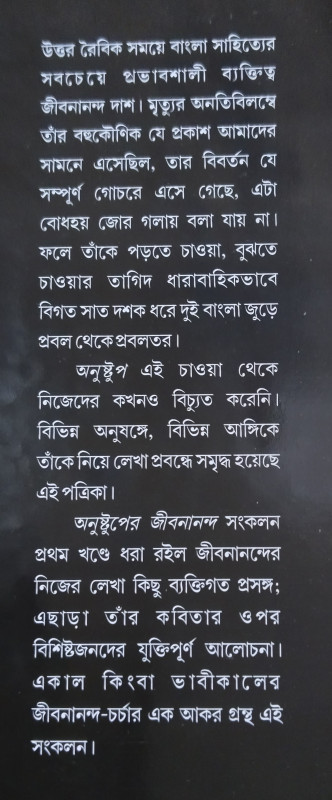 উত্তর রৈবিক সময়ে বাংলা সাহিত্যের
সবচেয়ে প্রভাবশালী ব্যক্তিত্ব
জীবনানন্দ দাশ। মৃত্যুর অনতিবিলম্বে
তাঁর বহুকৌণিক যে প্রকাশ আমাদের
সামনে এসেছিল, তার বিবর্তন যে
সম্পূর্ণ গোচরে এসে গেছে, এটা
বোধহয় জোর গলায় বলা যায় না।
ফলে তাঁকে পড়তে চাওয়া, বুঝতে
চাওয়ার তাগিদ ধারাবাহিকভাবে
বিগত সাত দশক ধরে দুই বাংলা জুড়ে
প্রবল থেকে প্রবলতর।
অনুষ্টুপ এই চাওয়া থেকে
নিজেদের কখনও বিচ্যুত করেনি।
বিভিন্ন অনুষঙ্গে, বিভিন্ন আঙ্গিকে
তাঁকে নিয়ে লেখা প্রবন্ধে সমৃদ্ধ হয়েছে
এই পত্রিকা।
অনুষ্টুপের জীবনানন্দ সংকলন
প্রথম খণ্ডে ধরা রইল জীবনানন্দের
নিজের লেখা কিছু ব্যক্তিগত প্রসঙ্গ;
এছাড়া তাঁর কবিতার ওপর
বিশিষ্টজনদের যুক্তিপূর্ণ আলোচনা।
একাল কিংবা ভাবীকালের
জীবনানন্দ-চর্চার এক আকর গ্রন্থ এই
সংকলন।